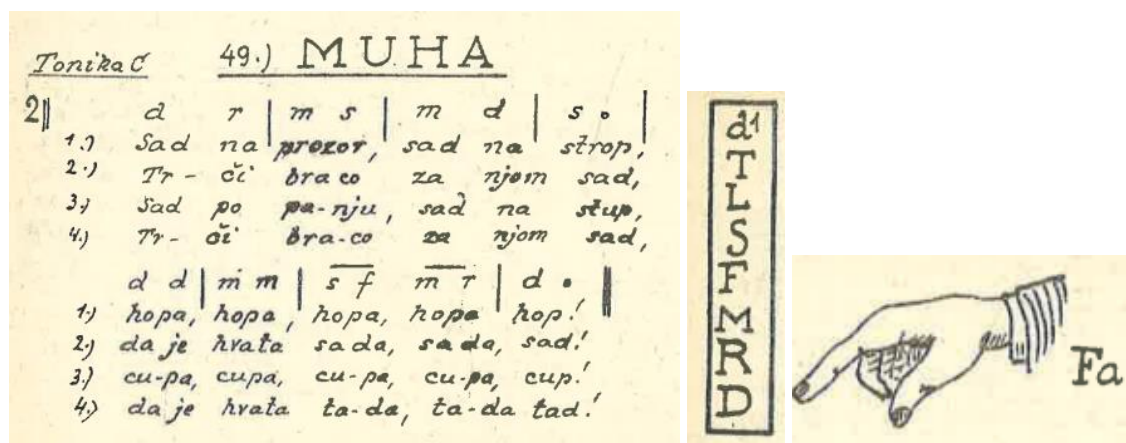 Tonika C 49.) MUHA
2|| d r | m s | m d | s • |
1.) Sad na prozor, sad na strop,
2.) Tr- či braco za njom sad,
3.) Sad po pa-nju, sad na stup,
4.) Tr- či bra-co za njom sad,
d d | m m | s f m r | d • ||
1.) hopa, hopa, hopa, hopa hop!
2.) da je hvata sada, sada, sad!
3.) cu-pa, cupa, cu-pa, cu-pa, cup!
4.) da je hvata ta-da, ta-da tad!
d1
T
L
S
F
M
R
D
Fa